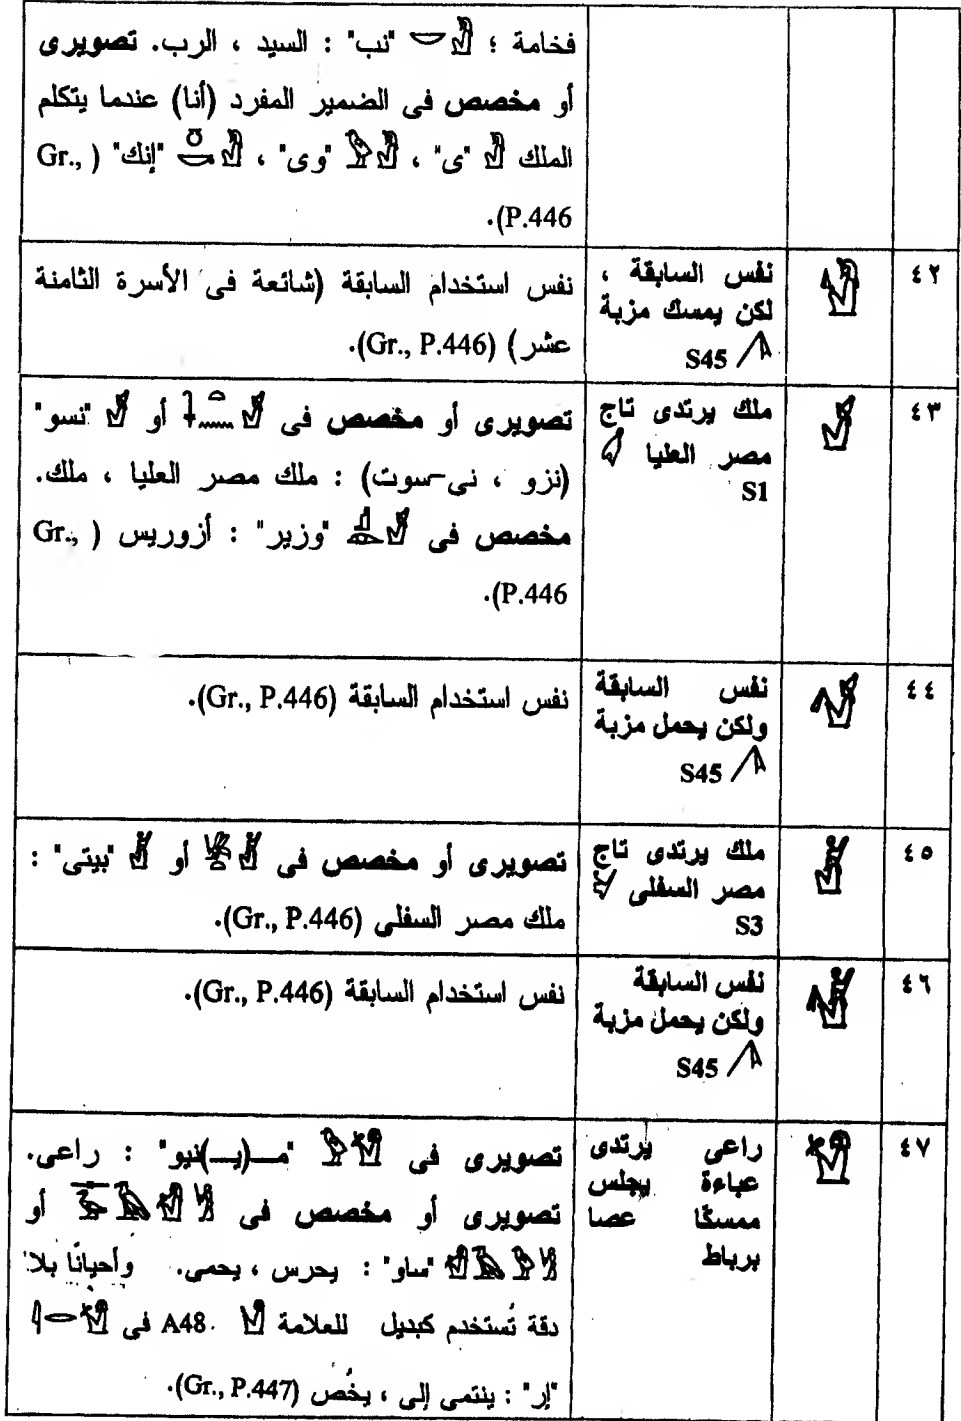 فخامة ؛ 𓀼𓎟 "نب" : السيد ، الرب. تصويرى
أو مخصص فى الضمير المفرد (أنا) عندما يتكلم
الملك "ى" ، "وى" ، "إنك" (Gr.,
P.446).
٤٢
نفس السابقة ،
لكن يمسك مزبة
S45
نفس استخدام السابقة (شائعة فى الأسرة الثامنة
عشر) (Gr., P.446).
٤٣
ملك يرتدى تاج
مصر العليا
S1
تصويرى أو مخصص فى أو "نسو"
(نزو ، نى-سوت) : ملك مصر العليا ، ملك.
مخصص فى "وزير" : أزوريس (Gr.,
P.446).
٤٤
نفس السابقة
ولكن يحمل مزبة
S45
نفس استخدام السابقة (Gr., P.446).
٤٥
ملك يرتدى تاج
مصر السفلى
S3
تصويرى أو مخصص فى أو "بيتى" :
ملك مصر السفلى (Gr., P.446).
٤٦
نفس السابقة
ولكن يحمل مزبة
S45
نفس استخدام السابقة (Gr., P.446).
٤٧
راعى يرتدى
عباءة يجلس
ممسكًا عصا
برباط
تصويرى فى "مـ(يـ)نيو" : راعى.
تصويرى أو مخصص فى أو
"ساو" : يحرس ، يحمى. وأحيانًا بلا
دقة تُستخدم كبديل للعلامة A48 فى
"إر" : ينتمى إلى ، يخُص (Gr., P.447).